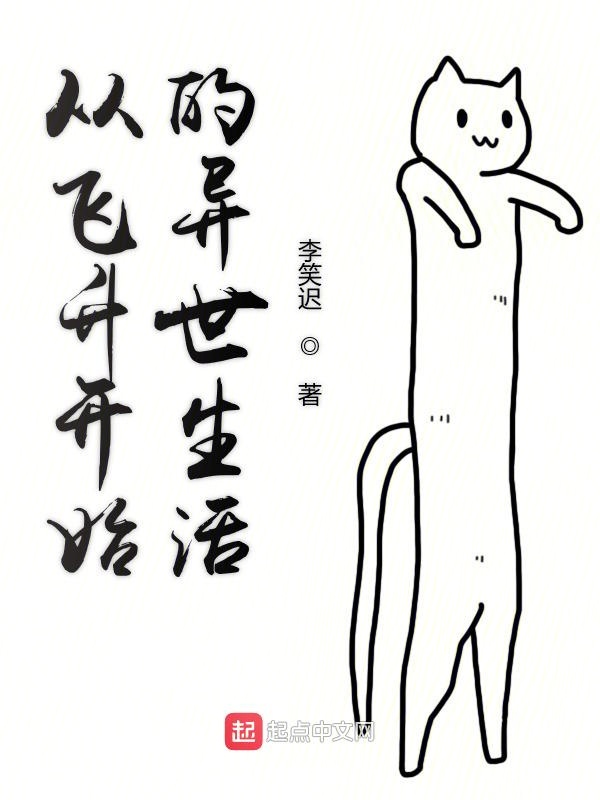 从飞升开始
的异世生活
李笑迟 ◎ 著
起 起点中文网